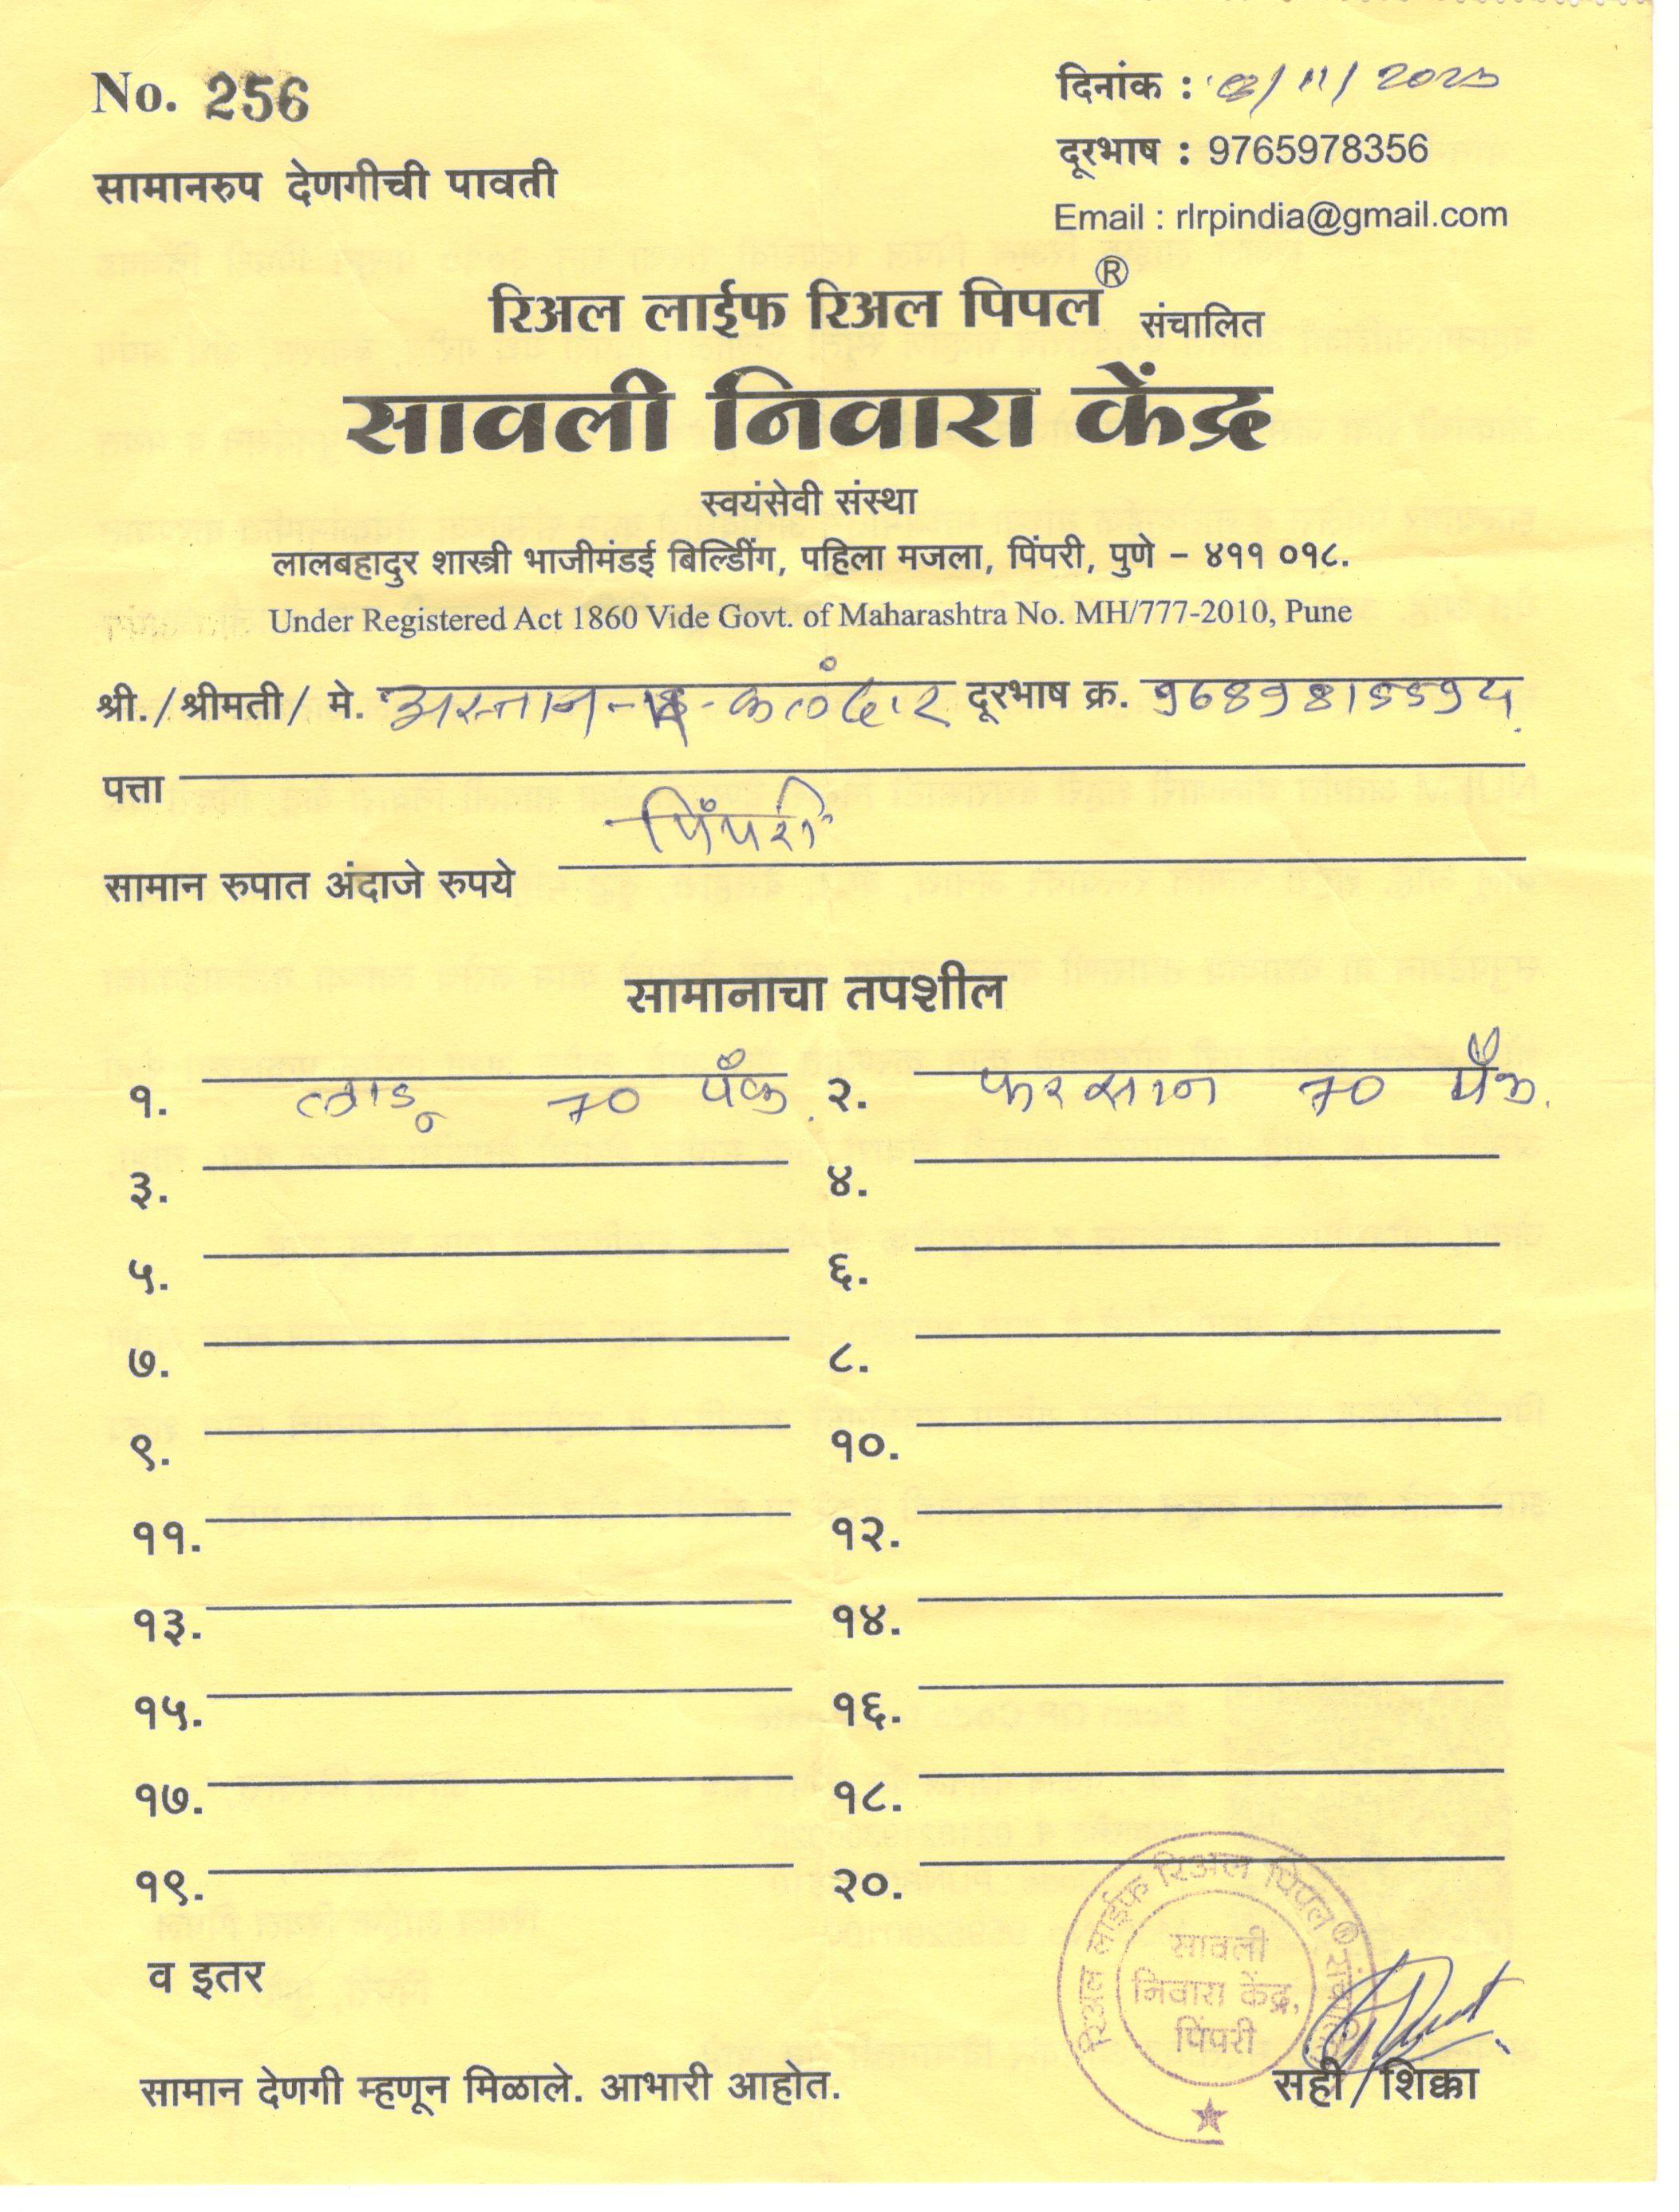 No. 256
दिनांक : /11/2025
दूरभाष : 9765978356
सामानरुप देणगीची पावती
Email : rlrpindia@gmail.com
रिअल लाईफ रिअल पिपल® संचालित
सावली निवारा केंद्र
स्वयंसेवी संस्था
लालबहादुर शास्त्री भाजीमंडई बिल्डिींग, पहिला मजला, पिंपरी, पुणे – ४११ ०१८.
Under Registered Act 1860 Vide Govt. of Maharashtra No. MH/777-2010, Pune
श्री./श्रीमती/ मे. कळंदार दूरभाष क्र.
पत्ता
पिंपरी
सामान रुपात अंदाजे रुपये
सामानाचा तपशील
१. लाडू 70 पॅक. २. फरसान 70 पॅक.
३. ४.
५. ६.
७. ८.
९. १०.
११. १२.
१३. १४.
१५. १६.
१७. १८.
१९. २०.
व इतर
रिअल लाईफ रिअल पिपल® संचालित
सावली
निवारा केंद्र,
पिंपरी
सामान देणगी म्हणून मिळाले. आभारी आहोत.
सही/शिक्का